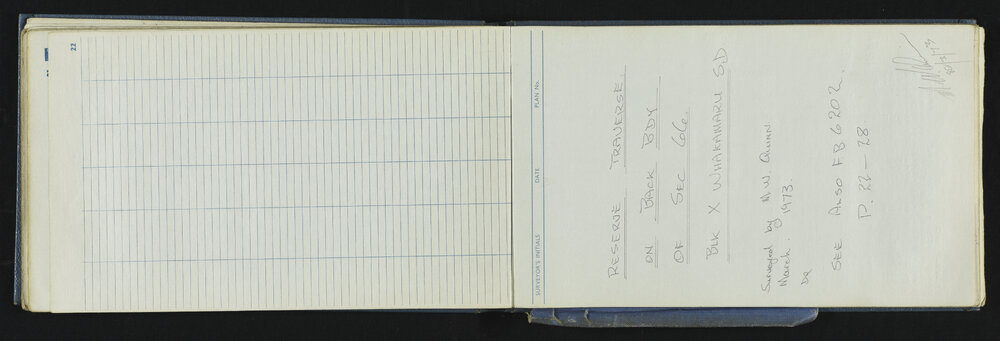 22
SURVEYOR'S INITIALS DATE PLAN No.
RESERVE TRAVERSE
ON BACK BDY
OF SEC 66.
BLK X WHAKAMARU S.D
Surveyed by M.W. Quinn
March. 1973.
SEE ALSO FB 6202.
P. 22-28